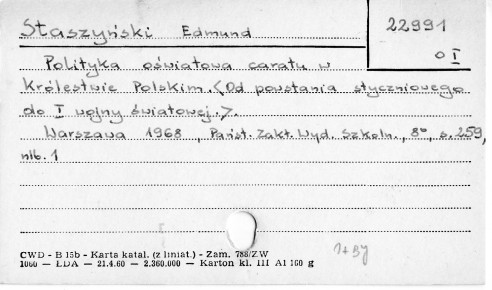 Staszyński Edmund
22991
O I
Polityka oświatowa caratu w
Królestwie Polskim. <Od powstania styczniowego
do I wojny światowej.>.
Warszawa 1968, Państ. Zakł. Wyd. Szkoln., 8°, s. 259,
nlb. 1
1+By
CWD - B 15b - Karta katal. (z liniat.) - Zam. 788/ZW
1060 — ŁDA — 21.4.60 — 2.360.000 — Karton kl. III A1 160 g